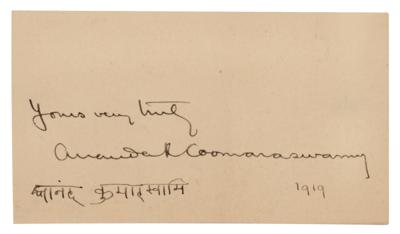 Yours very truly
Ananda K Coomaraswamy
आनंद कुमारस्वामि 1919